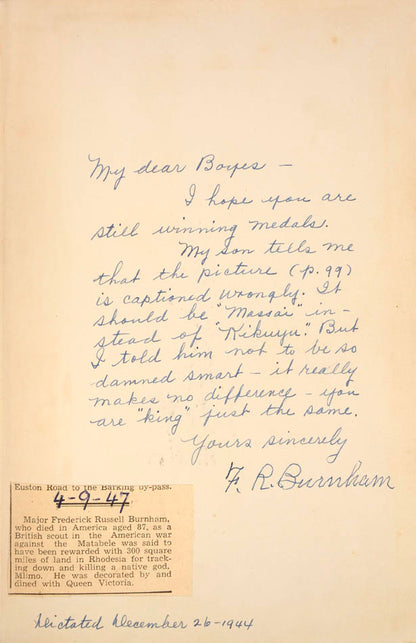 My dear Boyes –
I hope you are
still winning medals.
My son tells me
that the picture (p. 99)
is captioned wrongly. It
should be "Massai" in-
stead of "Kikuyu". But
I told him not to be so
damned smart – it really
makes no difference – you
are "king" just the same.
Yours sincerely
F. R. Burnham
Euston Road to the Barking by-pass.
4-9-47
Major Frederick Russell Burnham,
who died in America aged 87, as a
British scout in the American war
against the Matabele was said to
have been rewarded with 300 square
miles of land in Rhodesia for track-
ing down and killing a native god,
Mlimo. He was decorated by and
dined with Queen Victoria.
Dictated December 26-1944